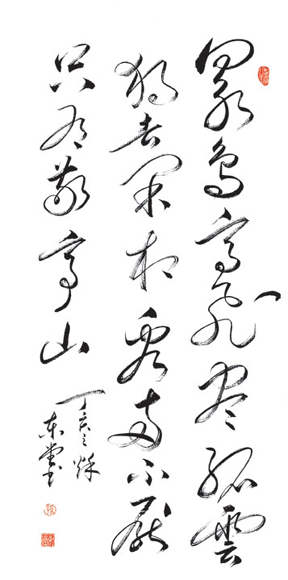 眾鳥高飛尽孤雲
独去闲相看两不厭
只有敬亭山
丁亥之秋
东堂